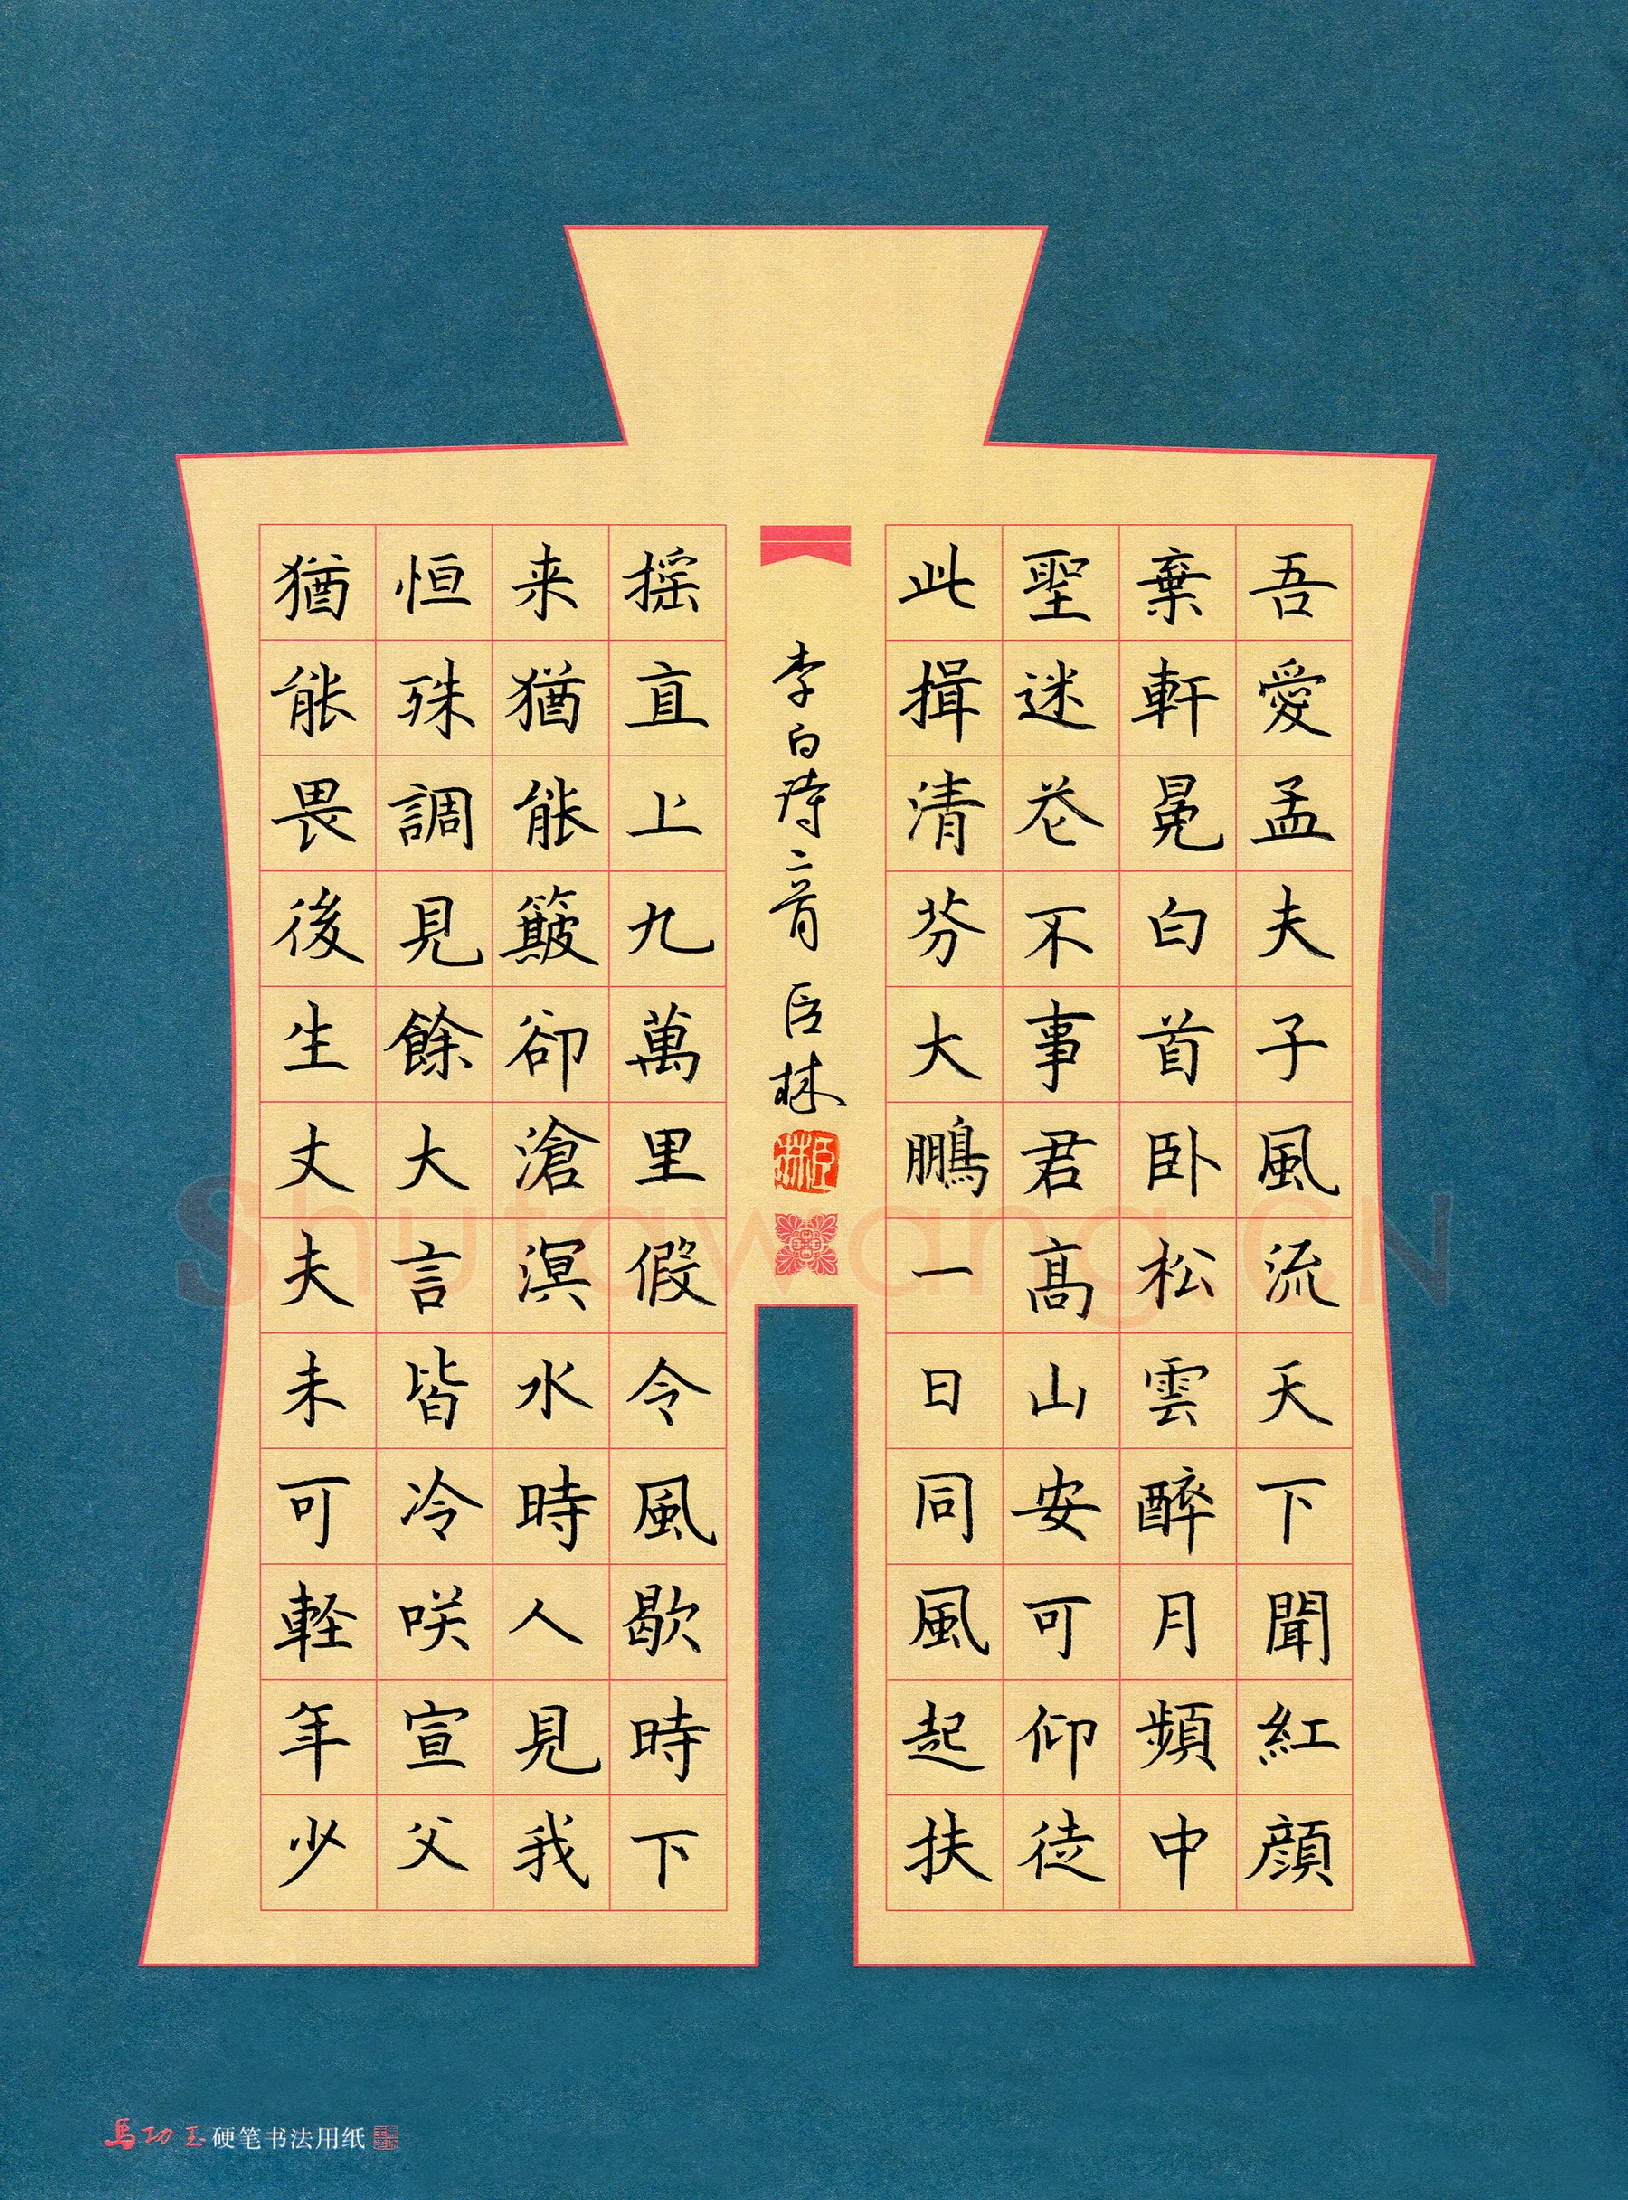 吾愛孟夫子風流天下聞紅顔
棄軒冕白首卧松雲醉月頻中
聖迷花不事君高山安可仰徒
此揖清芬大鵬一日同風起扶
李白詩二首 臣林
臣林
摇直上九萬里假令風歇時下
来猶能簸卻滄溟水時人見我
恒殊調見餘大言皆冷咲宣父
猶能畏後生丈夫未可輕年少
Shufawang.CN
馬功玉硬笔书法用纸